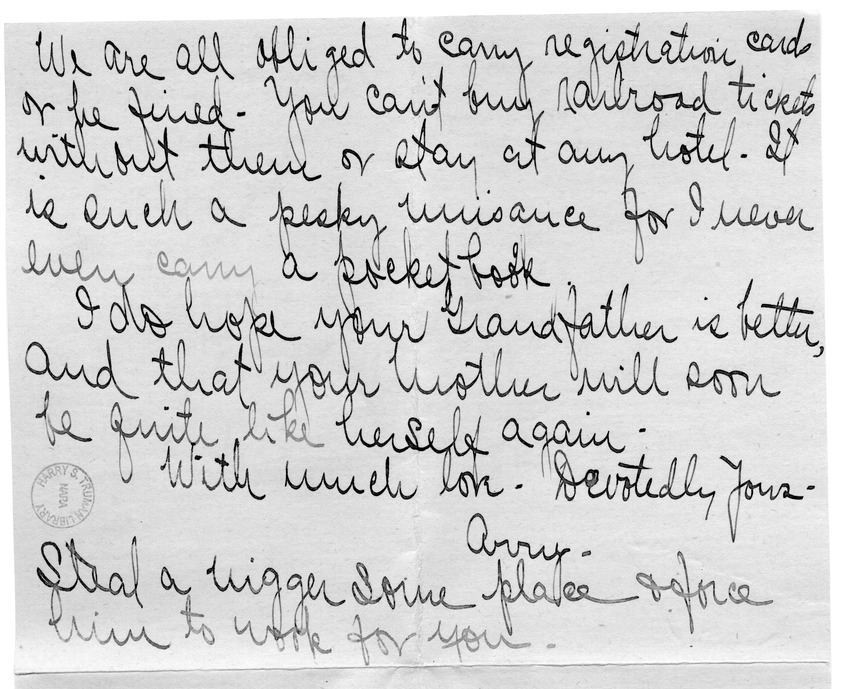 We are all obliged to carry registration cards
or be fined - You can't buy railroad tickets
without them or stay at any hotel - It
is such a pesky nuisance for I never
even carry a pocketbook.
I do hope your Grandfather is better,
and that your mother will soon
be quite like herself again -
With much love - Devotedly Yours -
Arry -
Steal a nigger some place & force
him to work for you -
HARRY S. TRUMAN LIBRARY
NARA